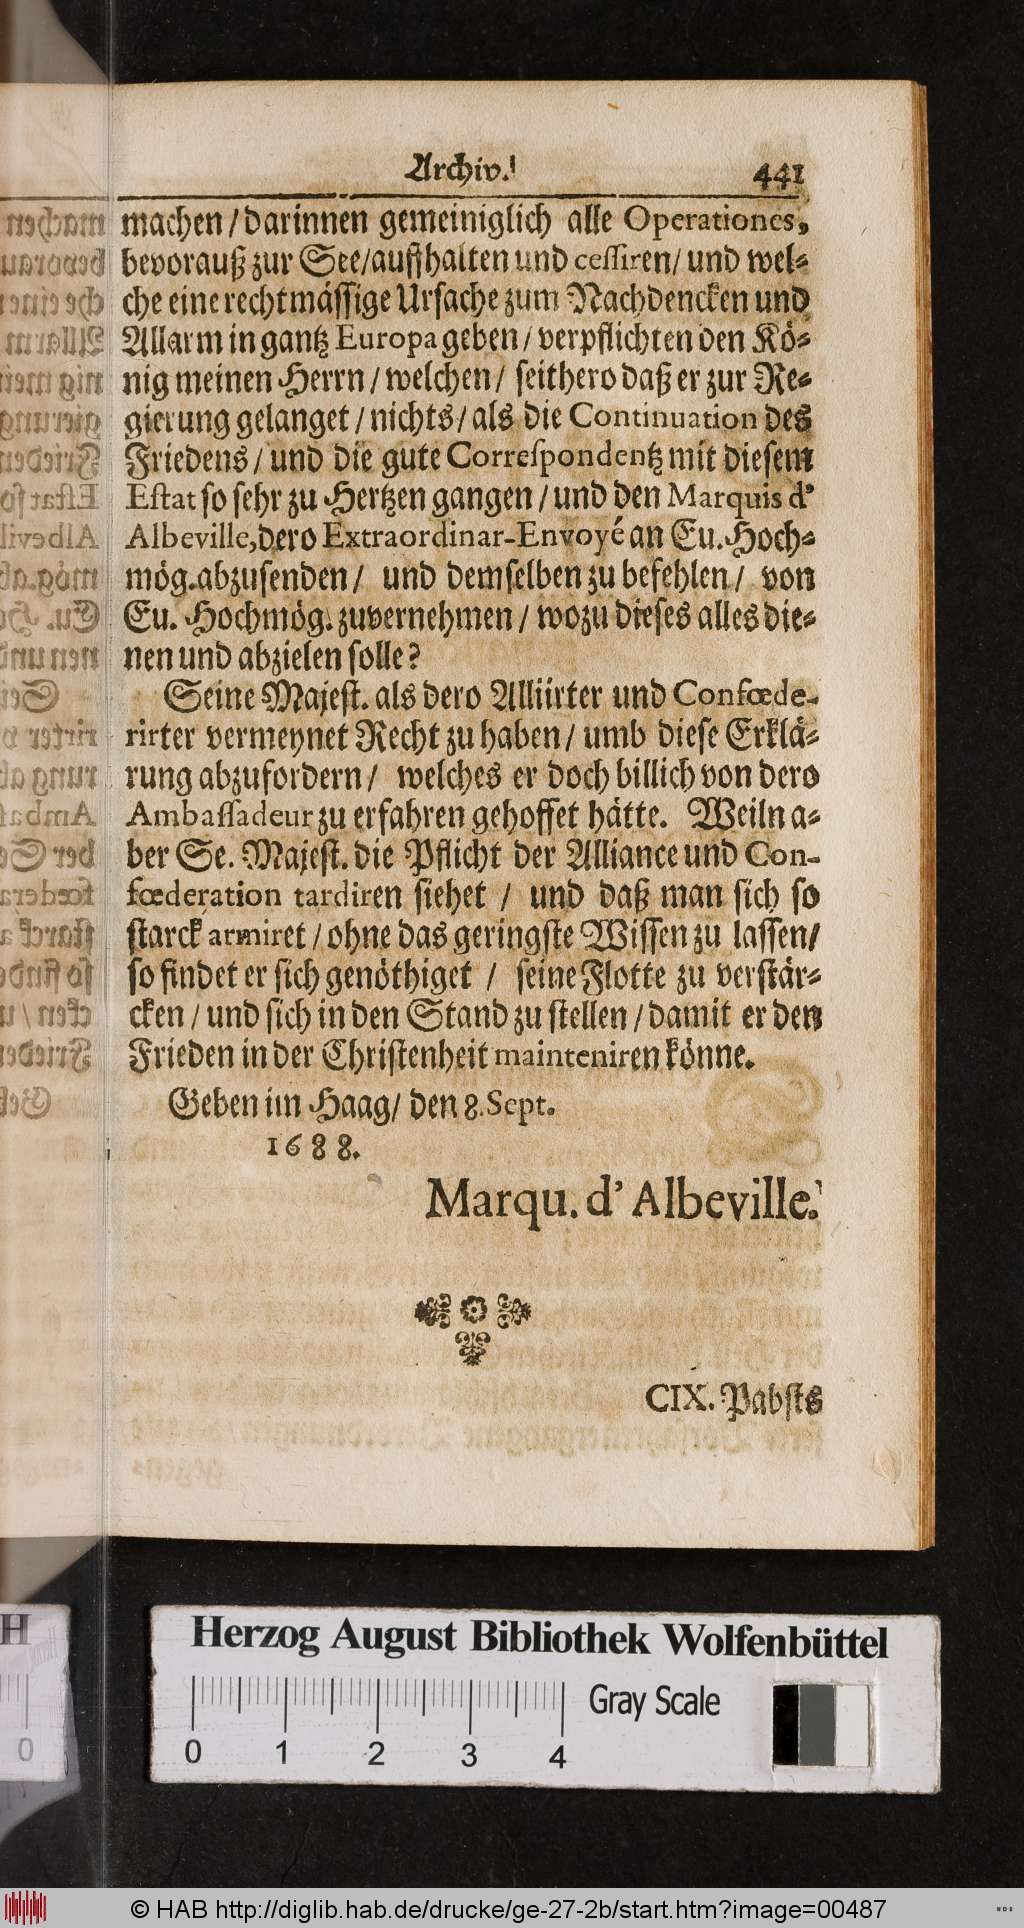 Archiv.
441
machen / darinnen gemeiniglich alle Operationes,
bevorauß zur See / auffhalten und cessiren / und wel-
che eine rechtmässige Ursache zum Nachdencken und
Allarm in gantz Europa geben / verpflichten den Kö-
nig meinen Herrn / welchen / seithero daß er zur Re-
gierung gelanget / nichts / als die Continuation des
Friedens / und die gute Correspondentz mit diesem
Estat so sehr zu Hertzen gangen / und den Marquis d'
Albeville, dero Extraordinar-Envoyé an Eu. Hoch-
mög. abzusenden / und demselben zu befehlen / von
Eu. Hochmög. zuvernehmen / wozu dieses alles die-
nen und abzielen solle?
Seine Majest. als dero Alliirter und Confœde-
rirter vermeynet Recht zu haben / umb diese Erklä-
rung abzufordern / welches er doch billich von dero
Ambassadeur zu erfahren gehoffet hätte. Weiln a-
ber Se. Majest. die Pflicht der Alliance und Con-
fœderation tardiren siehet / und daß man sich so
starck armiret / ohne das geringste Wissen zu lassen /
so findet er sich genöthiget / seine Flotte zu verstär-
cken / und sich in den Stand zu stellen / damit er den
Frieden in der Christenheit mainteniren könne.
Geben im Haag / den 8. Sept.
1688.
Marqu. d' Albeville.
CIX. Pabsts
H
Herzog August Bibliothek Wolfenbüttel
Gray Scale
0 0 1 2 3 4
© HAB http://diglib.hab.de/drucke/ge-27-2b/start.htm?image=00487